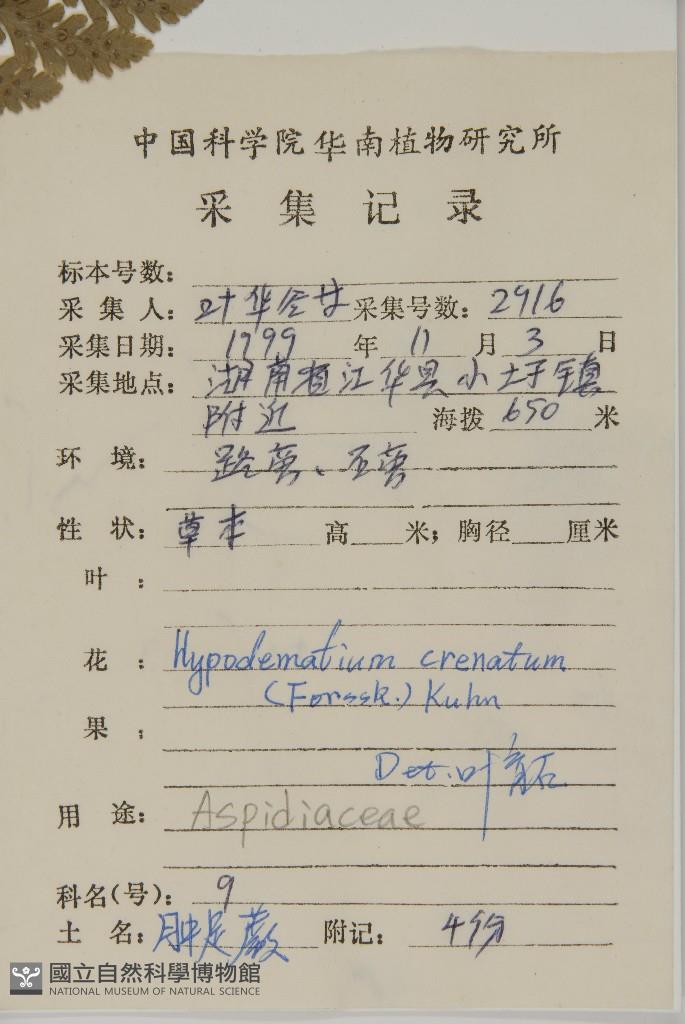 中国科学院华南植物研究所
采集记录
标本号数:
采集人: 叶华谷 采集号数: 2916
采集日期: 1999 年 11 月 3 日
采集地点: 湖南省江华县小圩镇
附近 海拨 650 米
环境: 路旁、石旁
性状: 草本 高 米; 胸径 厘米
叶:
花: Hypodematium crenatum
(Forssk.) Kuhn
果:
Det. 叶育石
用途: Aspidiaceae
科名(号): 9
土名: 肿足蕨 附记: 4份
國立自然科學博物館
NATIONAL MUSEUM OF NATURAL SCIENCE